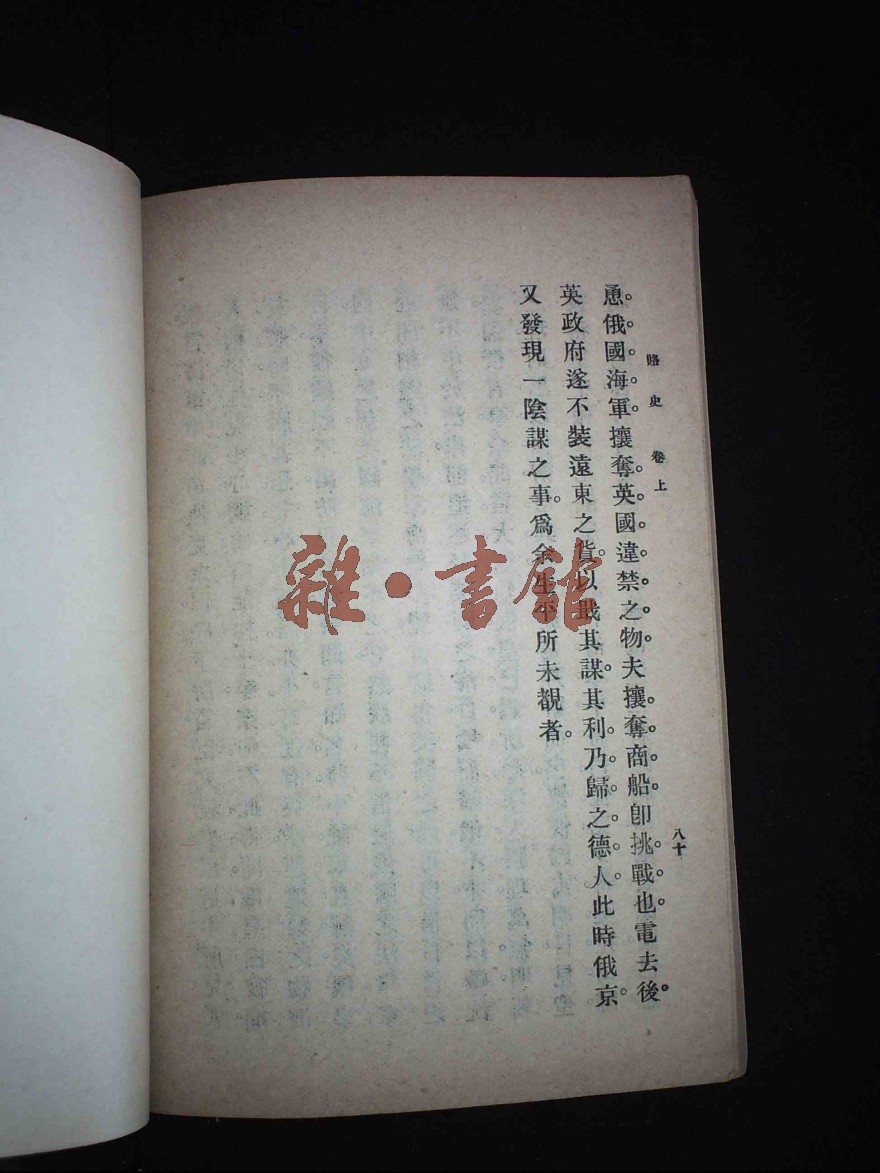 賂史 卷上 八十
恿。俄國海軍攘奪英國違禁之物。夫攘奪商船。卽挑戰也。電去後。
英政府遂不裝遠東之貨。以戢其謀。其利乃歸之德人。此時俄京
又發現一陰謀之事。爲余生平所未覩者。
雜·書館